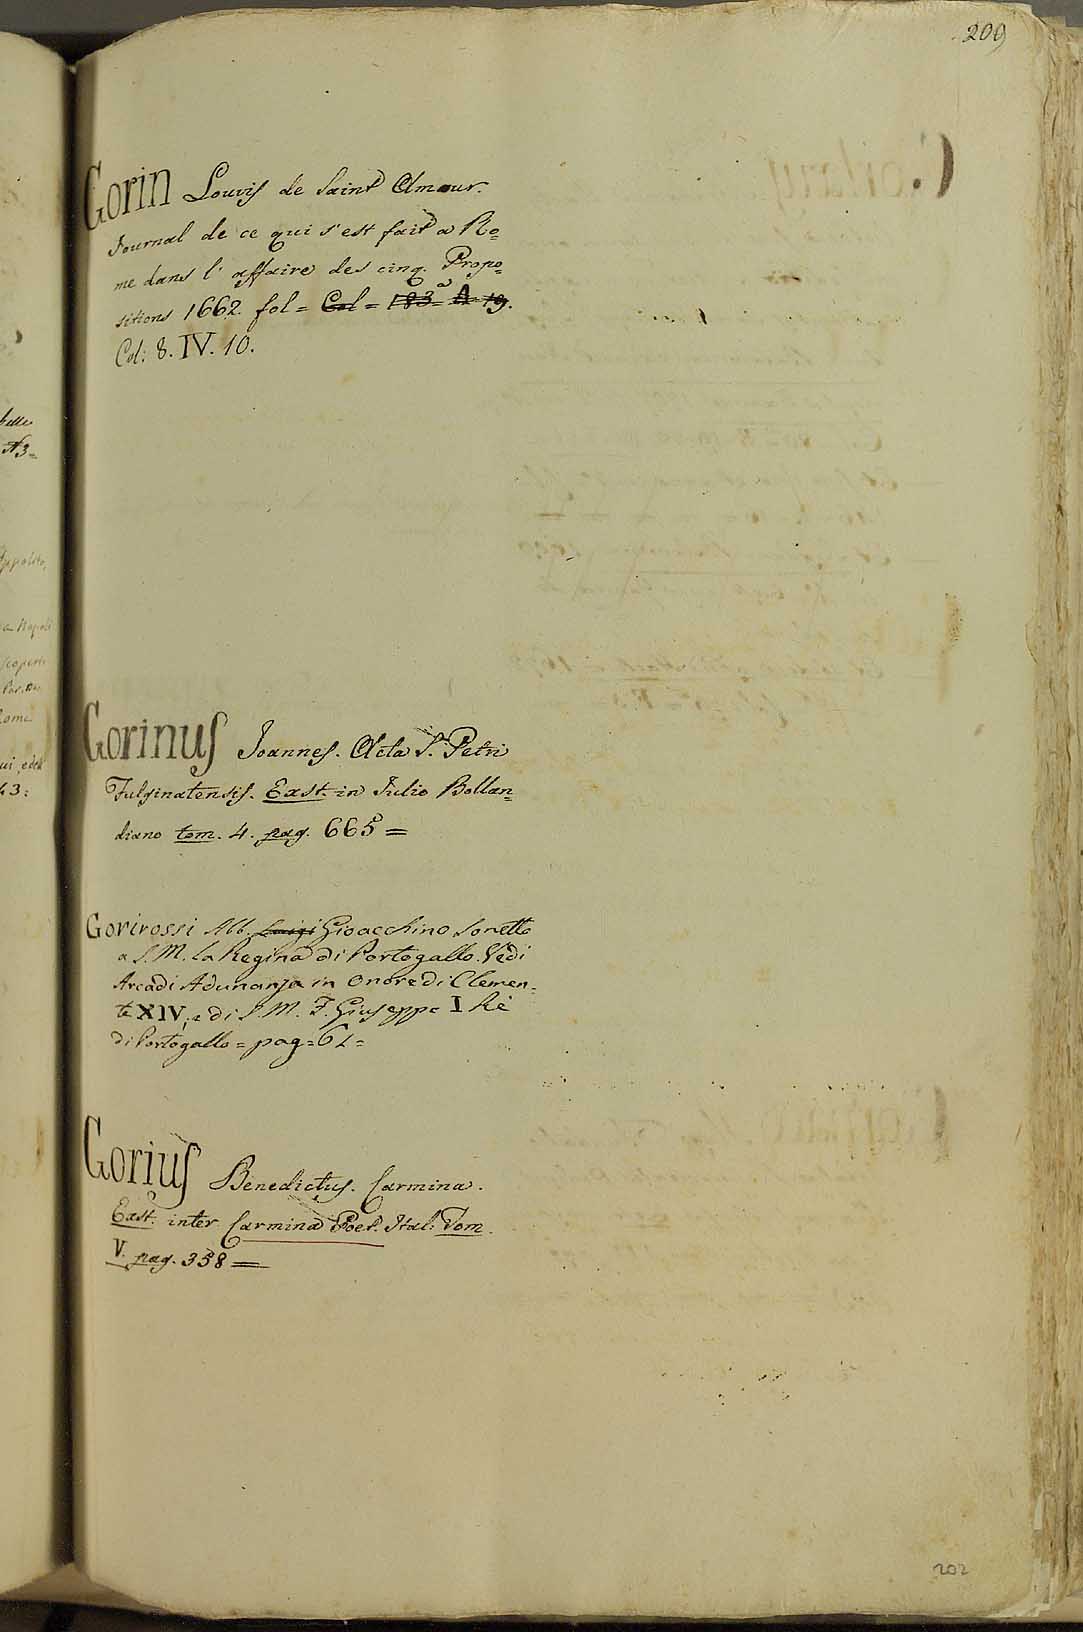 209
Gorin Louis de Saint Amour.
Journal de ce qui s'est fait a Ro=
me dans l'affaire des cinq. Propo=
sitions 1662. fol = Col = 183 = A 19.
Col: 8. IV. 10.
Gorinus Joannes. Acta S. Petri
Fulginatensis. Exst. in Julio Bollan=
diano tom. 4. pag. 665 =
Gorirossi Abb. Luigi Gioacchino Sonetto
a S. M. la Regina di Portogallo. Vedi
Arcadi Adunanza in Onore di Clemen=
te XIV, e di S. M. F. Giuseppe I Rè
di Portogallo = pag = 61 =
Gorius Benedictus. Carmina.
Exst. inter Carmina Poet. Ital: Tom.
V. pag. 358 =
202